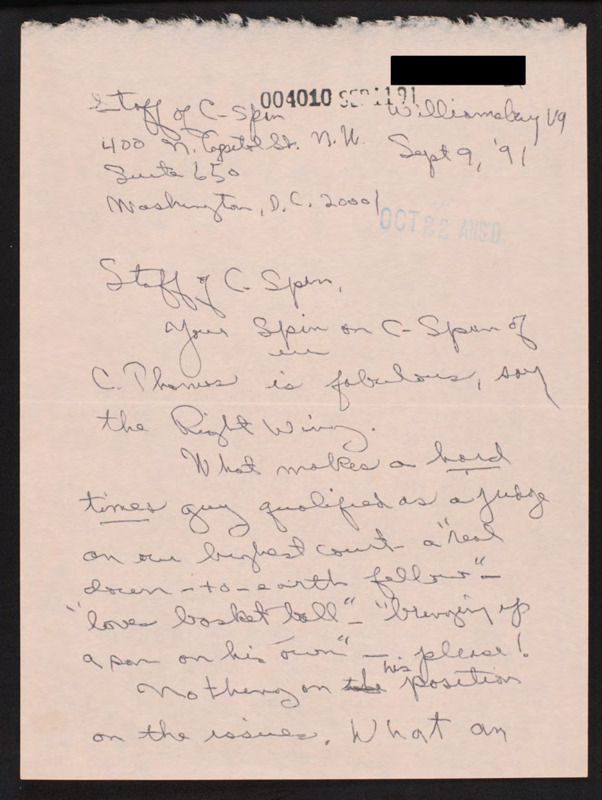 004010 SEP 11 91
Williamsburg Va
Staff of C-Spin
400 N. Capitol St. N.W.
Sept 9, '91
Suite 650
Washington, D.C. 20001
OCT 22 ANS'D
Staff of C-Spin,
Your Spin on C-Span of
C. Thomas is fabulous, say
the Right Wing.
What makes a hard
times guy qualified as a judge
on our highest court - a "real
down-to-earth fellow" -
"loves basket ball" - "bringing up
a son on his own" - please!
Nothing on his position
on the issues. What an